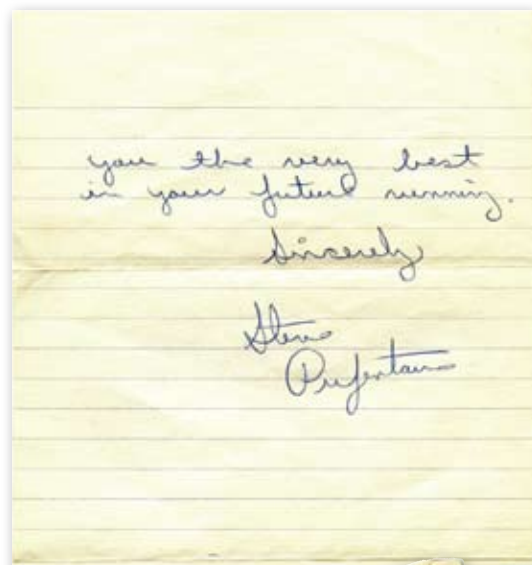 you the very best
in your future running.
Sincerely
Steve
Prefontaine